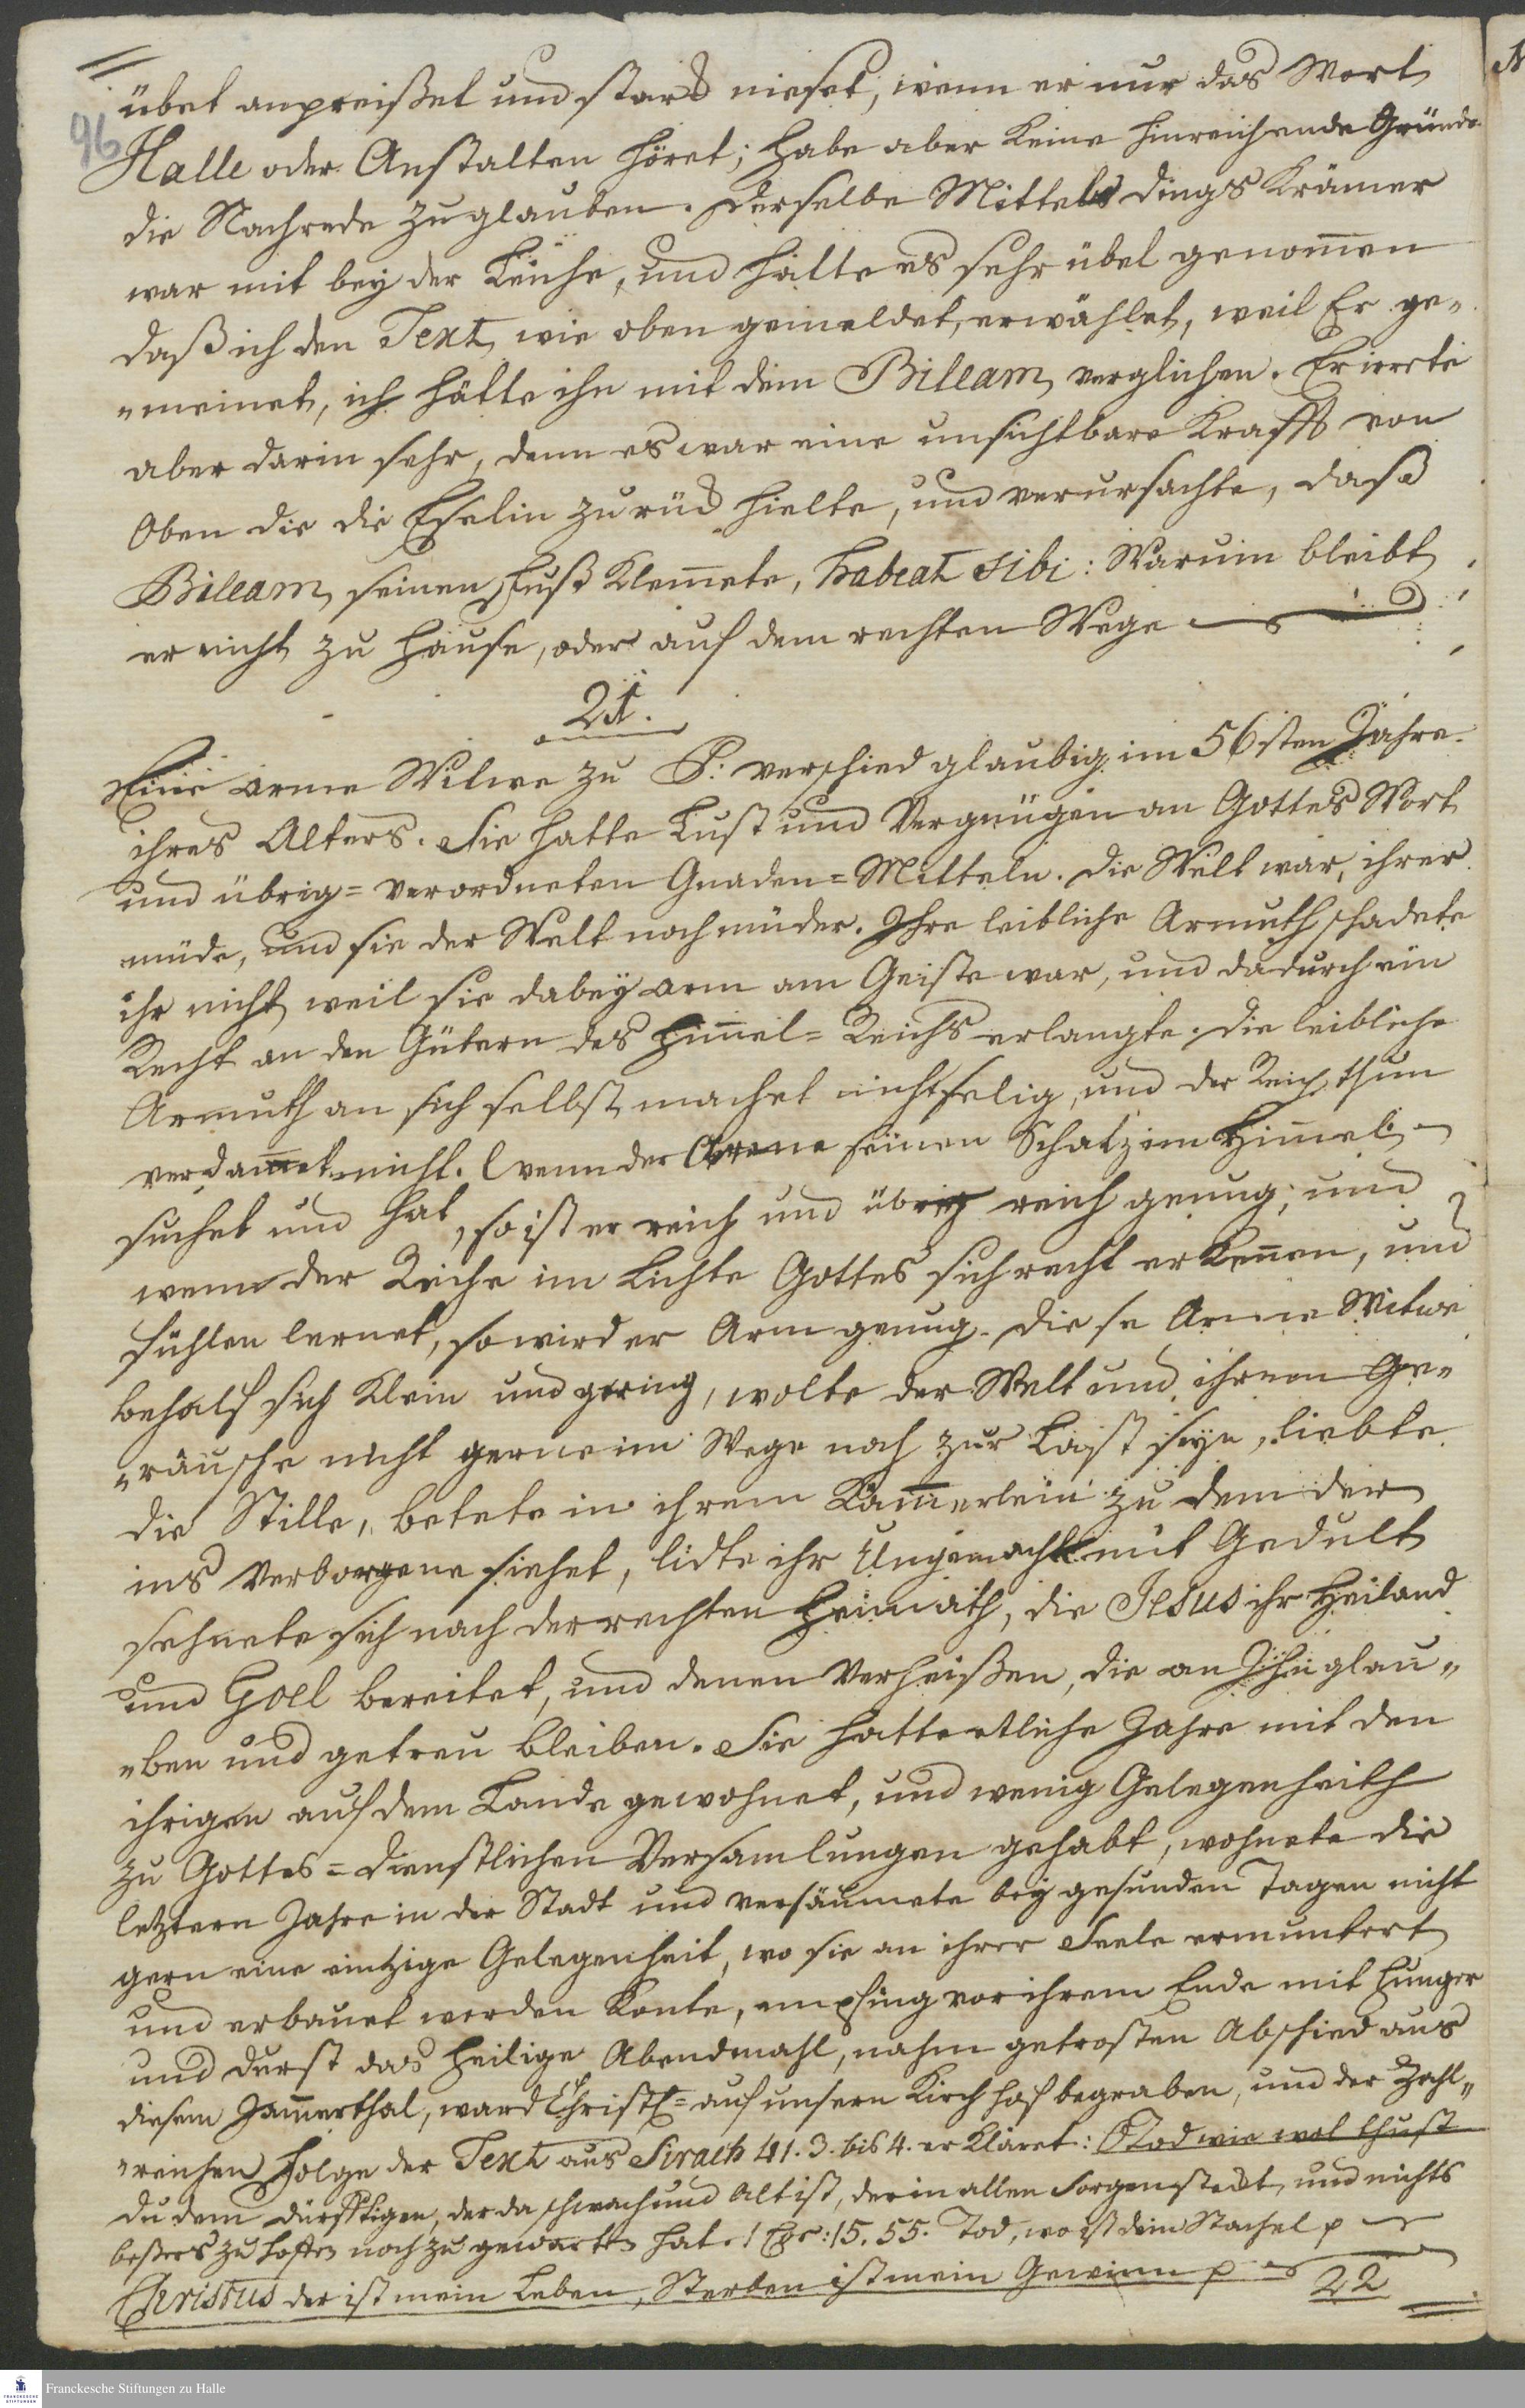 96
übet anpreißet und starck nieset, wenn er nur das Wort
Halle oder Anstalten höret; habe aber keine hinreichende Gründe
die Nachrede zu glauben. Derselbe Mittels dings Krämer
war mit bey der Leiche, und hätte es sehr übel genom̅en
daß ich den Text, wie oben gemeldet, erwählet, weil Er ge„
„meinet, ich hätte ihn mit dem Billeam, verglichen. Er irrete
aber darin sehr, denn es war eine unsichtbare Krafft von
Oben die die Eselin zurück hielte, und verursachte, daß
Billeam, seinen Fuß klem̅ete, habeat sibi: Warum bleibt
er nicht zu Hause, oder auf dem rechten Wege
21.
Eine arme Witwe zu P: verschied glaubig im 56sten Jahre
ihres Alters. Sie hatte Lust und Vergnügen an Gottes Wort
und übrig = verordneten Gnaden = Mitteln. Die Welt war, ihrer
müde, und sie der Welt noch müder. Ihre leibliche Armuth schadete
ihr nicht, weil sie dabey arm am Geiste war, und dadurch ein
Recht an den Gütern des Him̅el = Reichs erlangte. Die leibliche
Armuth an sich selbst machet nicht selig, und der Reichthum
verdam̅et nicht. Wenn der Arme seinen Schatz im Him̅el
suchet und hat, so ist er reich und übrig reich genug; und
wenn der Reiche im Lichte Gottes sich recht erken̅en, und
fühlen lernet, so wird er Arm genug. Diese Arme Witwe
behalf sich klein und gering, wolte der Welt und ihrem Ge„
„räusche nicht gerne im Wege noch zur Last seyn, liebte
die Stille, betete in ihrem Käm̅erlein zu dem der
ins Verborgene siehet, lidte ihr Ungemach mit Gedult
sehnete sich nach der rechten Heimath, die Jesus ihr Heiland
und Goel bereitet, und denen Verheißen, die an Ihn glau„
„ben und getreu bleiben. Sie hatte etliche Jahre mit den
ihrigen auf dem Lande gewohnet, und wenig Gelegenheith
zu Gottes = dienstlichen Versamlungen gehabt, wohnete die
letztern Jahre in der Stadt und versäumete bey gesunden Tagen nicht
gern eine eintzige Gelegenheit, wo sie an ihrer Seele ermuntert
und erbauet werden konte, empfing vor ihrem Ende mit Hunger
und Durst das heilige Abendmahl, nahm getrosten Abschied aus
diesem Jam̅erthal, ward Christl= auf unsern Kirchhof begraben, und der Zahl„
„reichen Folge der Text aus Sirach 41. 3. bis 4. erkläret: O Tod wie wol thust
du dem dürfftigen, der da schwach und Alt ist, der in allen Sorgen steckt, und nichts
beßers zu hoffen noch zu gewarten hat. 1 Cor: 15. 55. Tod, wo ist dein Stachel p
Christus der ist mein Leben, Sterben ist mein Gewinn p
22
Franckesche Stiftungen zu Halle